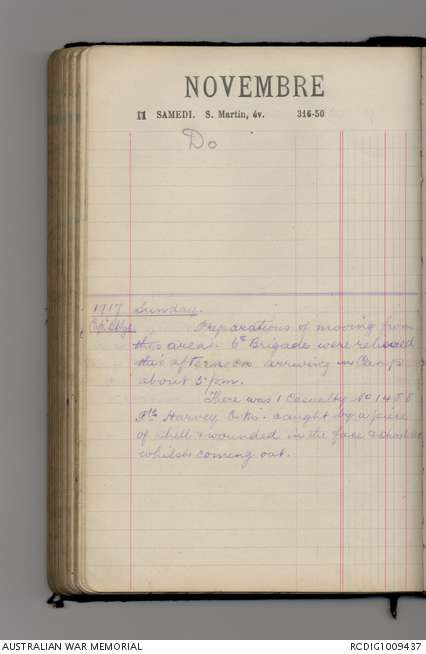 NOVEMBRE
11 SAMEDI. S. Martin, év. 316-50
Do
1917 Sunday.
Preparations of moving from
this area. 6th Brigade were relieved
this afternoon arriving in Camp
about 5 pm.
There was 1 Casualty No 1488
Pte Harvey caught by a piece
of shell & wounded in the face &
whilst coming out.
AUSTRALIAN WAR MEMORIAL
RCDIG1009437